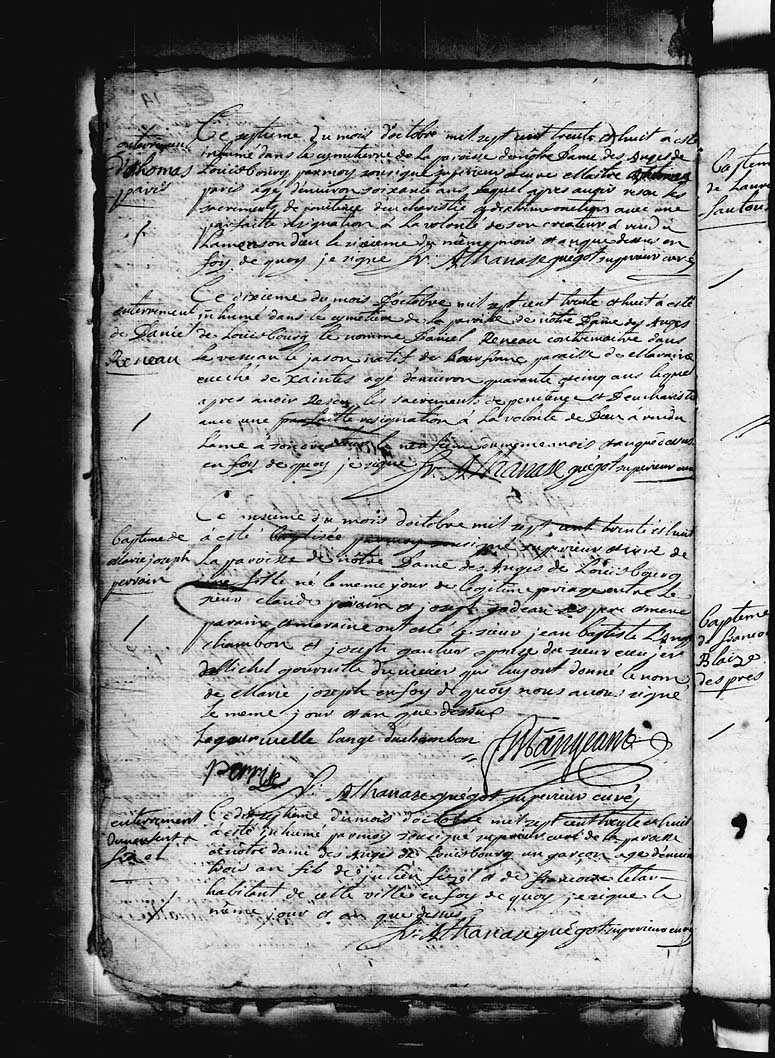 14
enterrement
d'Thomas
paris
Ce septieme du mois doctobre mil sept cent trente et huit a esté
inhumé dans la cymetierre de la paroisse de nôtre Dame des Anges de
Louisbourg par moy sousigné superieur et curé Maitre Thomas
paris agé denviron soixante ans lequel apres avoir resu les
sacrements de penitence deucharistie et dextreme onction avec une
parfaitte resignation à la volonté de son createur à rendu
lame son dieu le sixieme du même mois et an que dessus en
foy de quoy je signe fr. Athanase guégot superieur curé
enterrement
de Daniel
Reneau
Ce dixieme du mois doctobre mil sept cent trente et huit à esté
inhumé dans le cymetiere de la paroisse de nôtre Dame des Anges
de Louisbourg le nommé Daniel Reneau contremaitre dans
le vesseau le jason natif de paroisse de
eveché de Xaintes agé denviron quarante et cinq ans lequel
apres avoir Reseu les sacrements de penitence et deucharistie
avec une parfaitte resignation à la volonté de Dieu à rendu
lame à son le neufieme du même mois et an que dessus
en foy de quoy je signe fr. Athanase guégot superieur curé
bapteme de
Marie joseph
perrain
Ce onsieme du mois doctobre mil sept cent trente et huit
à esté baptisée par moy superieur et curé de
la paroisse de nôtre Dame des Anges de Louisbourg
une fille né le même jour de légitime mariage entre le
sieur claude et joseph gadeau ses pere et mere
parain et maraine ont esté le sieur jean baptiste Lange
chambon et joseph gaultier epouse du sieur
Michel gourville Duvivier qui luy ont donné le nom
de Marie joseph en foy de quoy nous avons signé
le meme jour et an que dessus
lagourville lange duchambon
perrin
fr. Athanase guégot superieur curé
enterrement
Ce dixseptieme du mois doctobre mil sept cent trente et huit
à esté inhumé par moy sousigné superieur curé de la paroisse
de nôtre dame des Anges de Louisbourg un garçon agé denviron
trois an fils de julien et de francoise
habitant de cette ville en foy de quoy je signe le
même jour et an que dessus
fr. Athanase guégot superieur curé
Baptem
de Laur
Bapteme
de francoi
Blaize
des pres